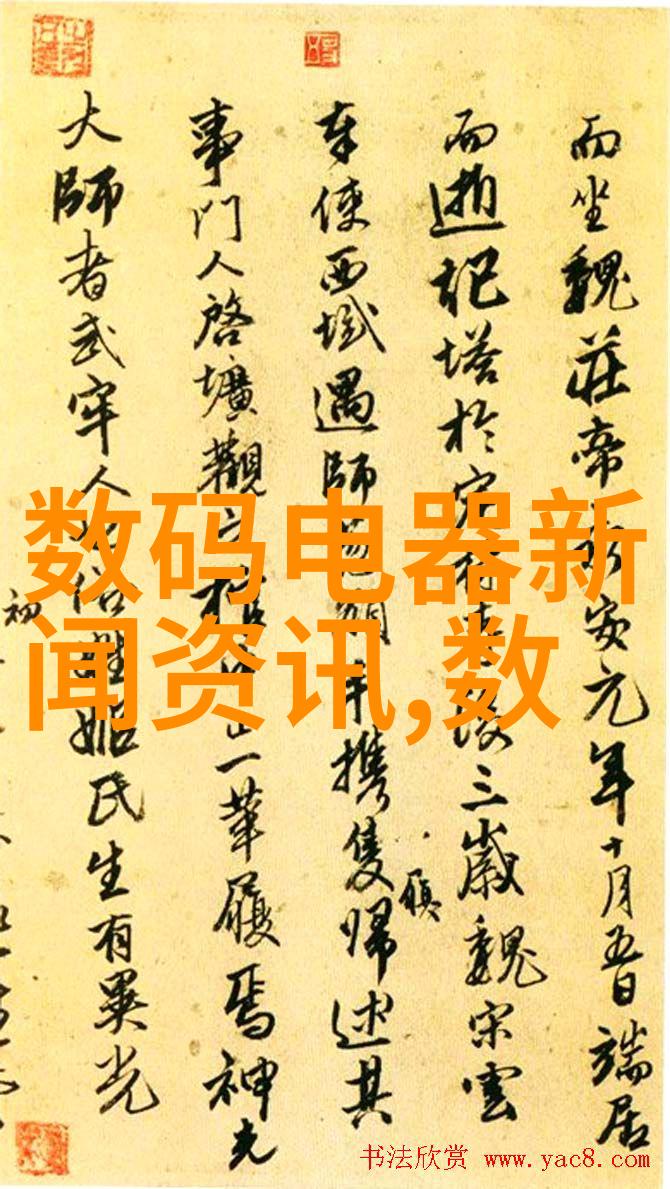 而坐魏莊帝安元年十月五日端居
而逝記塔於三歲魏宋雲
奉使西域遇師手携隻歸述其
履
事門人啓壙觀一革履焉神光
大師者武牢人姬氏生有異光
初
数码电器新
闻资讯,数
书法欣赏 www.yac8.com